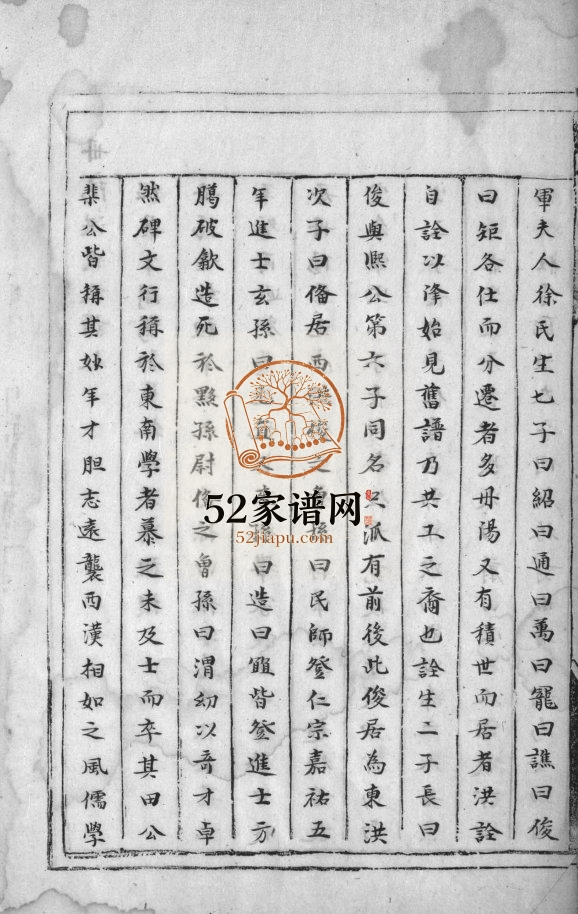 軍夫人徐民生七子曰紹曰通曰萬曰寵曰譙曰俊
曰矩各仕而分遷者多丹湯又有積世而居者洪詮
自詮以泽始見舊譜乃共工之裔也詮生二子長曰
俊與熙公第六子同名派有前後此俊居為東洪
次子曰俻居西孫曰民師登仁宗嘉祐五
年進士玄孫曰造曰皆登進士方
臈破歙造死於黟孫尉之曾孫曰渭幼以奇才卓
然碑文行稱於東南學者慕之未及士而卒其田公
棐公皆稱其妙年才胆志遠襲西漢相如之風儒學
52家谱网
52jiapu.com